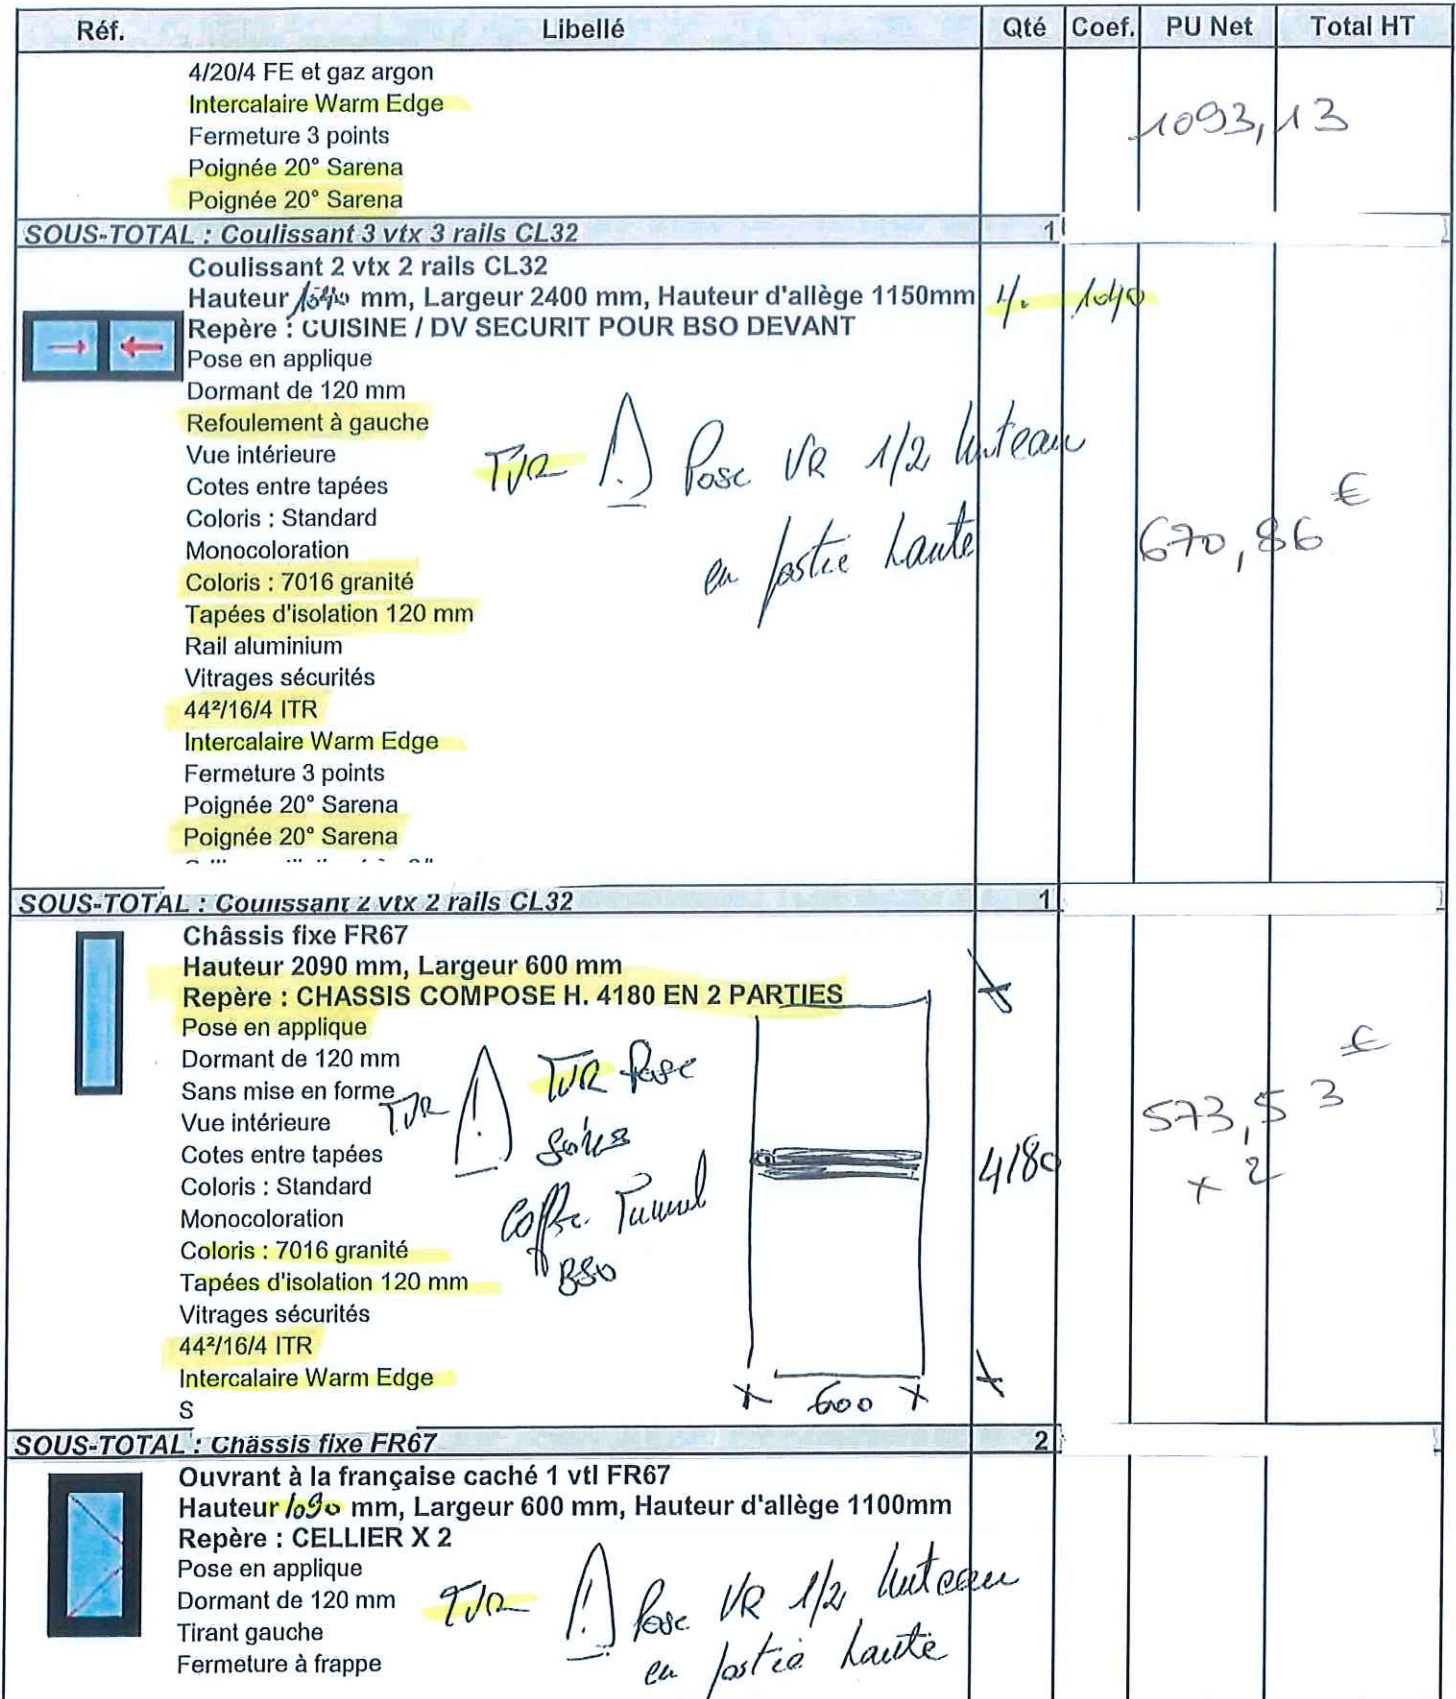 Réf. Libellé Qté Coef. PU Net Total HT
4/20/4 FE et gaz argon
Intercalaire Warm Edge
1093,13
Fermeture 3 points
Poignée 20° Sarena
Poignée 20° Sarena
SOUS-TOTAL : Coulissant 3 vtx 3 rails CL32 1
Coulissant 2 vtx 2 rails CL32
Hauteur mm, Largeur 2400 mm, Hauteur d'allège 1150mm 1040
Repère : CUISINE / DV SECURIT POUR BSO DEVANT
Pose en applique
Dormant de 120 mm
Refoulement à gauche
Vue intérieure
TVR ! Pose VR 1/2 linteau
Cotes entre tapées
Coloris : Standard
Monocoloration
en partie haute
670,86 €
Coloris : 7016 granité
Tapées d'isolation 120 mm
Rail aluminium
Vitrages sécurités
44²/16/4 ITR
Intercalaire Warm Edge
Fermeture 3 points
Poignée 20° Sarena
Poignée 20° Sarena
SOUS-TOTAL : Coulissant 2 vtx 2 rails CL32 1
Châssis fixe FR67
Hauteur 2090 mm, Largeur 600 mm
Repère : CHASSIS COMPOSE H. 4180 EN 2 PARTIES
Pose en applique
Dormant de 120 mm
TVR Pose
Sans mise en forme
TVR !
573,53 €
Vue intérieure
Cotes entre tapées
4180
x 2
Coloris : Standard
Monocoloration
Coffre Tunnel
Coloris : 7016 granité
BSO
Tapées d'isolation 120 mm
Vitrages sécurités
44²/16/4 ITR
Intercalaire Warm Edge
600
S
SOUS-TOTAL : Châssis fixe FR67 2
Ouvrant à la française caché 1 vtl FR67
Hauteur 1090 mm, Largeur 600 mm, Hauteur d'allège 1100mm
Repère : CELLIER X 2
Pose en applique
Dormant de 120 mm
TVR ! Pose VR 1/2 linteau
Tirant gauche
Fermeture à frappe
en partie haute